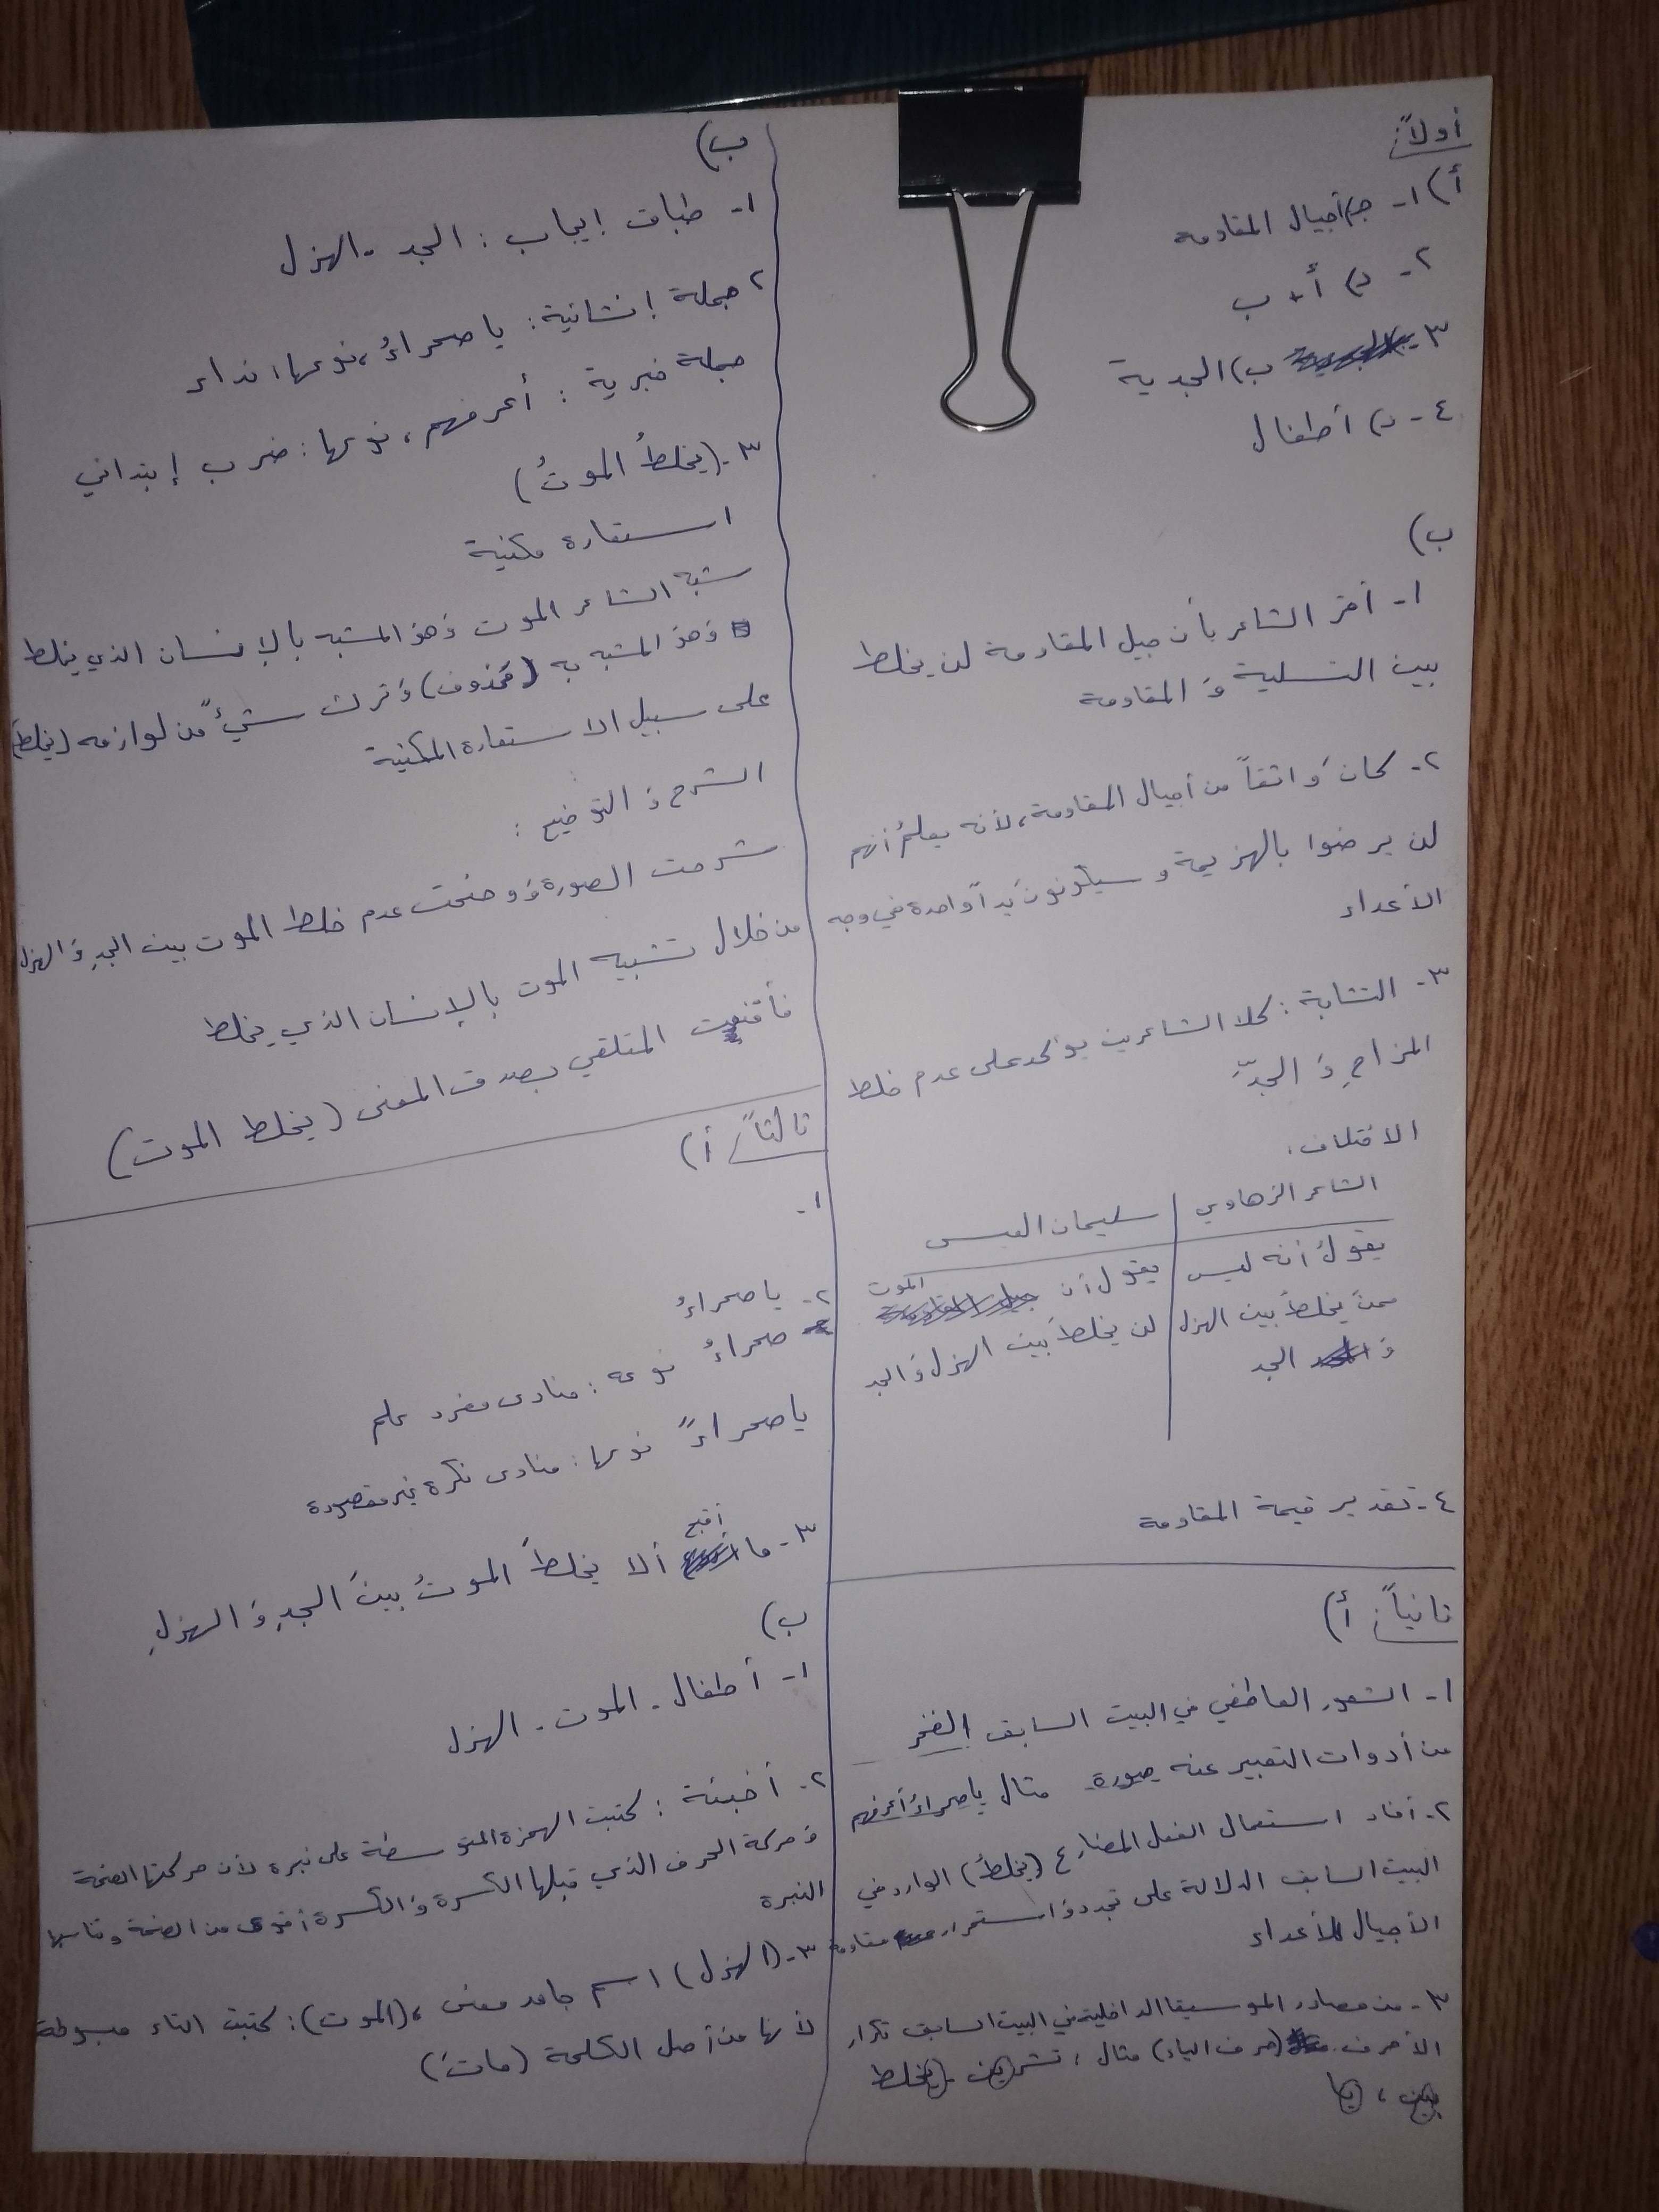 أولاً:
أ) ١- ج) أجيال المقاومة
٢- د) أ + ب
٣- ب) الجدية
٤- د) أطفال
ب)
١- أقر الشاعر بأن جيل المقاومة لن يخلط
بين التسلية وَ المقاومة
٢- كان وَاثقاً من أجيال المقاومة، لأنه يعلمُ أنهم
لن يرضوا بالهزيمة و سيكونون يَداً وَاحدة في وجه
الأعداء
٣- التشابة: كلا الشاعرين يؤكد على عدم خلط
المزاحِ وَ الجدِّ
الاختلاف:
الشاعر الزهاوي | سليمان العيسى
يقولُ أنه ليس | يقول أن الموت
ممنْ يخلطَ بين الهزل | لن يخلطَ بَين الهزل وَ الجد
وَ الجد
٤- تقدير قيمة المقاومة
ثانياً: أ)
١- الشعور العاطفي في البيت السابق الفخر
من أدوات التعبير عنه صورة مثال يا صحراءُ أعرفهم
٢- أفاد استعمال الفعل المضارع (يخلطُ) الوارد في
البيت السابق الدلالة على تجدد وَ استمرار مقاومة
الأجيال للأعداء
٣- من مصادر الموسيقا الداخلية في البيت السابق تكرار
الأحرف (حرف الياء) مثال: تشرين - يخلط
بين، يا
ب)
١- طباق إيجاب: الجد - الهزل
٢ جملة إنشائية: يا صحراءُ، نوعها: نداء
جملة خبرية: أعرفهم، نوعها: ضرب إبتدائي
٣- (يخلطُ الموتُ)
استعارة مكنية
شبه الشاعر الموت وَهوَ المشبه بالإنسان الذي يخلط
وَهوَ المشبه به (مَحذوف) وَترك شيءٌ مّن لوازمه (يخلط)
على سبيل الاستعارة المكنية
الشرح وَ التوضيح:
شرحت الصورة وَوضحت عدم خلط الموت بين الجدِ وَ الهزل
من خلال تشبيه الموت بالإنسان الذي يخلط
فأقنعت المتلقي بصدق المعنى (يخلط الموت)
ثالثاً/ أ)
١-
٢- يا صحراءُ
صحراءُ نوعه: منادى مفرد علم
يا صحراءً نوعها: منادى نكرة غير مقصودة
٣- ما أقبح ألا يخلطَ الموتُ بينَ الجدِ وَ الهزلِ
ب)
١- أطفال - الموت - الهزل
٢- أخبئة: كتبت الهمزة المتوسطة على نبرة لأن حركتها الفتحة
وَحركة الحرف الذي قبلها الكسرة وَ الكسرة أقوى من الفتحة و يناسبها
النبرة
٣- (الهزل) اسم جامد معنى، (الموت): كتبت التاء مبسوطة
لأنها من أصل الكلمة (ماتَ)